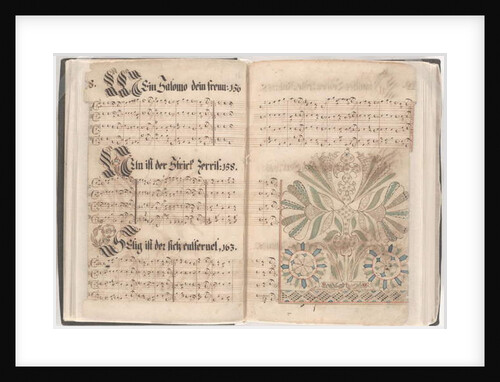 8. Mein Salomo dein freun: 156
Nun ist der Strick zerriß: 158.
ist der sich entfernet, 163.